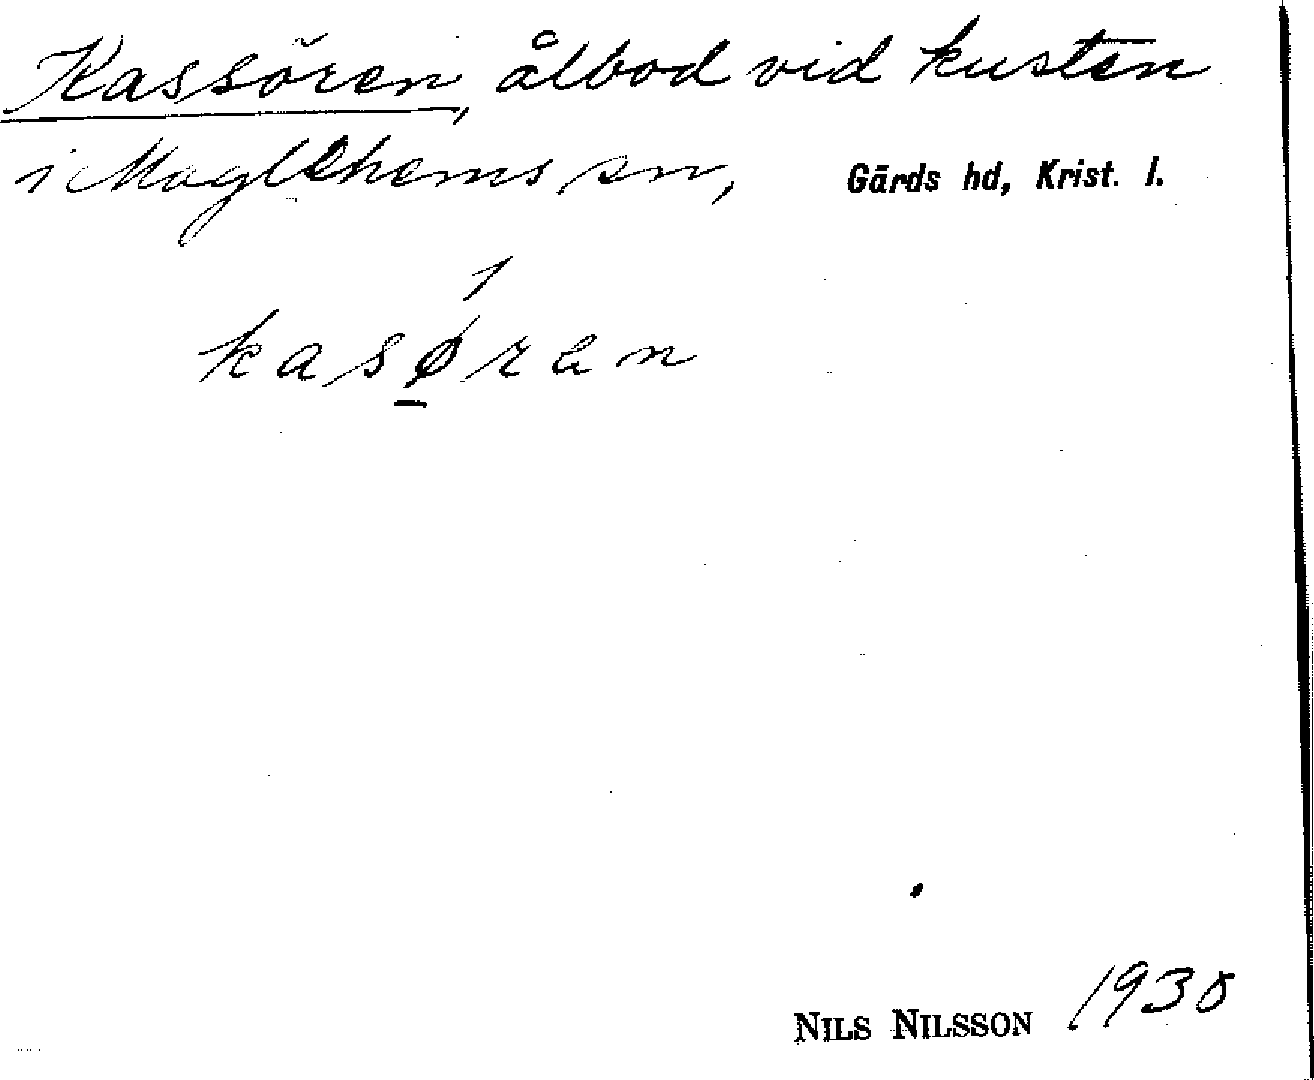 Kassören, ålbod vid kusten
i Maglehems sn, Gärds hd, Krist. l.
1
kasøran
NILS NILSSON 1930